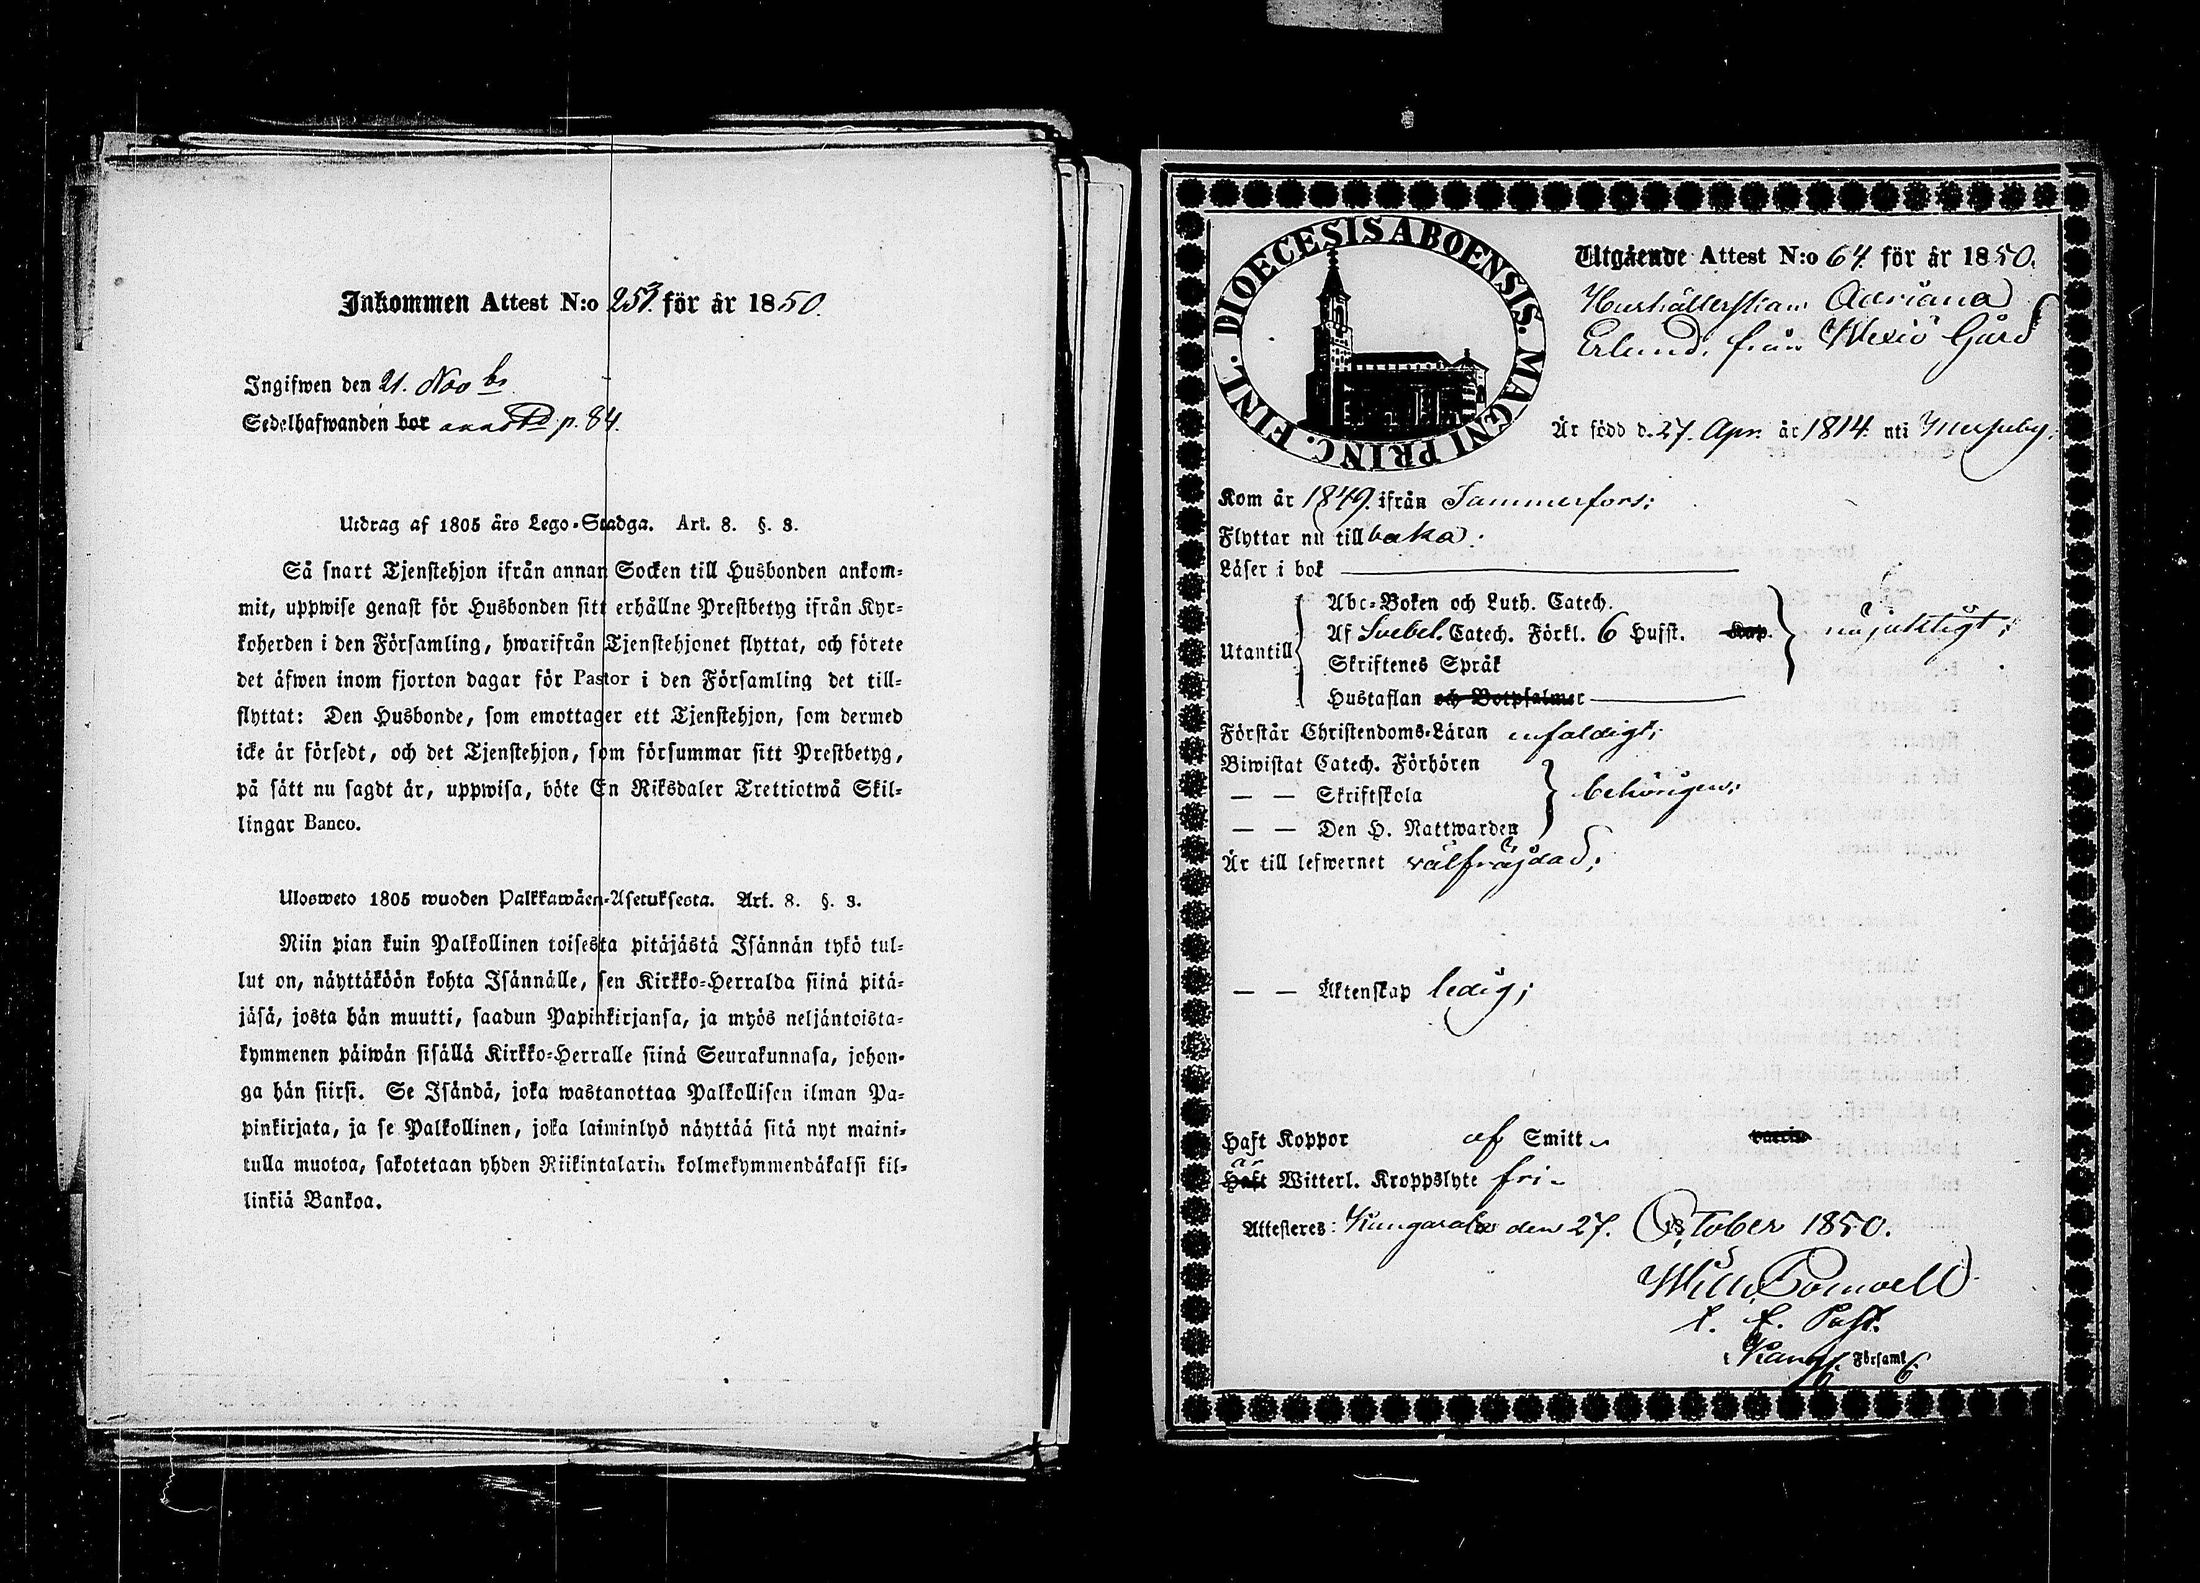 Inkommen Attest N:o 257. för år 1850.
Ingifwen den 21. Novbr
Sedelhafwanden bor annot p. 84.
Utdrag af 1805 års Lego-Stadga. Art. 8. §. 8.
Så snart Tjenstehjon ifrån annan Socken till Husbonden ankom-
mit, uppwise genast för Husbonden sitt erhållne Prestbetyg ifrån Kyr-
koherden i den Församling, hwarifrån Tjenstehjonet flyttat, och förete
det äfwen inom fjorton dagar för Pastor i den Församling det till-
flyttat: Den Husbonde, som emottager ett Tjenstehjon, som dermed
icke är försedt, och det Tjenstehjon, som försummar sitt Prestbetyg,
på sätt nu sagdt är, uppwisa, böte En Riksdaler Trettiotwå Skil-
lingar Banco.
Ulosweto 1805 wuoden Palkkawäen-Asetuksesta. Art. 8. §. 8.
Niin pian kuin Palkollinen toisesta pitäjästä Isännän tykö tul-
lut on, näyttäköön kohta Isännälle, sen Kirkko-Herralda siinä pitä-
jäsä, josta hän muutti, saadun Papinkirjansa, ja myös neljäntoista-
kymmenen päiwän sisällä Kirkko-Herralle siinä Seurakunnasa, johon-
ga hän siirsi. Se Isändä, joka wastanottaa Palkollisen ilman Pa-
pinkirjata, ja se Palkollinen, joka laiminlyö näyttää sitä nyt maini-
tulla muotoa, sakotetaan yhden Riikintalarin kolmekymmendäkaksi kil-
linkiä Bankoa.
DIOECESIS ABOENSIS. MAGNI PRINC. FINL.
Utgående Attest N:o 64. för år 1850.
Hushållerskan Adriana
Erlund, från Wexiö Gård
Är född d. 27. Apr. år 1814. uti Messuby.
Kom år 1849. ifrån Tammerfors;
Flyttar nu tillbaka.
Läser i bok
Abc-Boken och Luth. Catech.
Af Svebel. Catech. Förkl. 6 Hufst. Kap. nöjaktigt;
Utantill
Skriftenes Språk
Hustaflan och Botpsalmer
Förstår Christendoms-Läran enfaldigt;
Biwistat Catech. Förhören
— — Skriftskola behörigen;
— — Den H. Nattwarden
Är till lefwernet välfräjdad;
— — Äktenskap ledig;
Haft Koppor af Smitt vaccin
Haft är Witterl. Kroppslyte fri
Attesteres: Kangasala den 27. October 1850.
Past.
i Kang. Församl